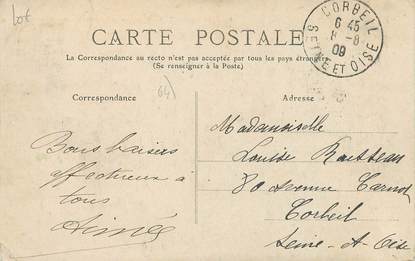 Lot
CORBEIL
6 45
8 -8
09
SEINE ET OISE
CARTE POSTALE
La Correspondance au recto n'est pas acceptée par tous les pays étrangers
(Se renseigner à la Poste)
64)
Correspondance
Bons baisers
affectueux à
tous
Aimée
Adresse
Mademoiselle
Louise
80 Avenue Carnot
Corbeil
Seine-et-Oise